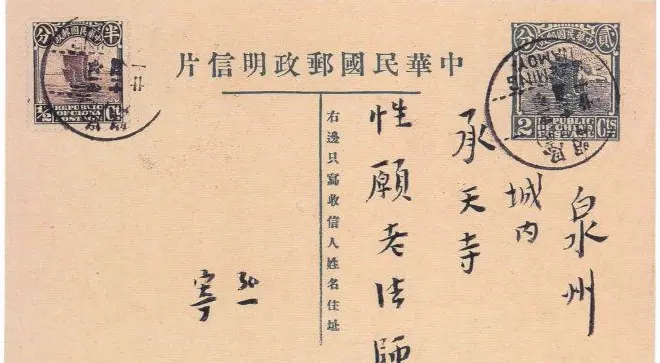 片信明政郵國民華中
貳分
中華民國郵政
REPUBLIC
OF CHINA
2 Cts
半分
中華民國郵政
REPUBLIC
OF CHINA
POSTAGE
1/2 Ct
SZEMING
(AMOY)
思明
泉州
城內
承天寺
性願老法師
右邊只寫收信人姓名住址
弘一
寄